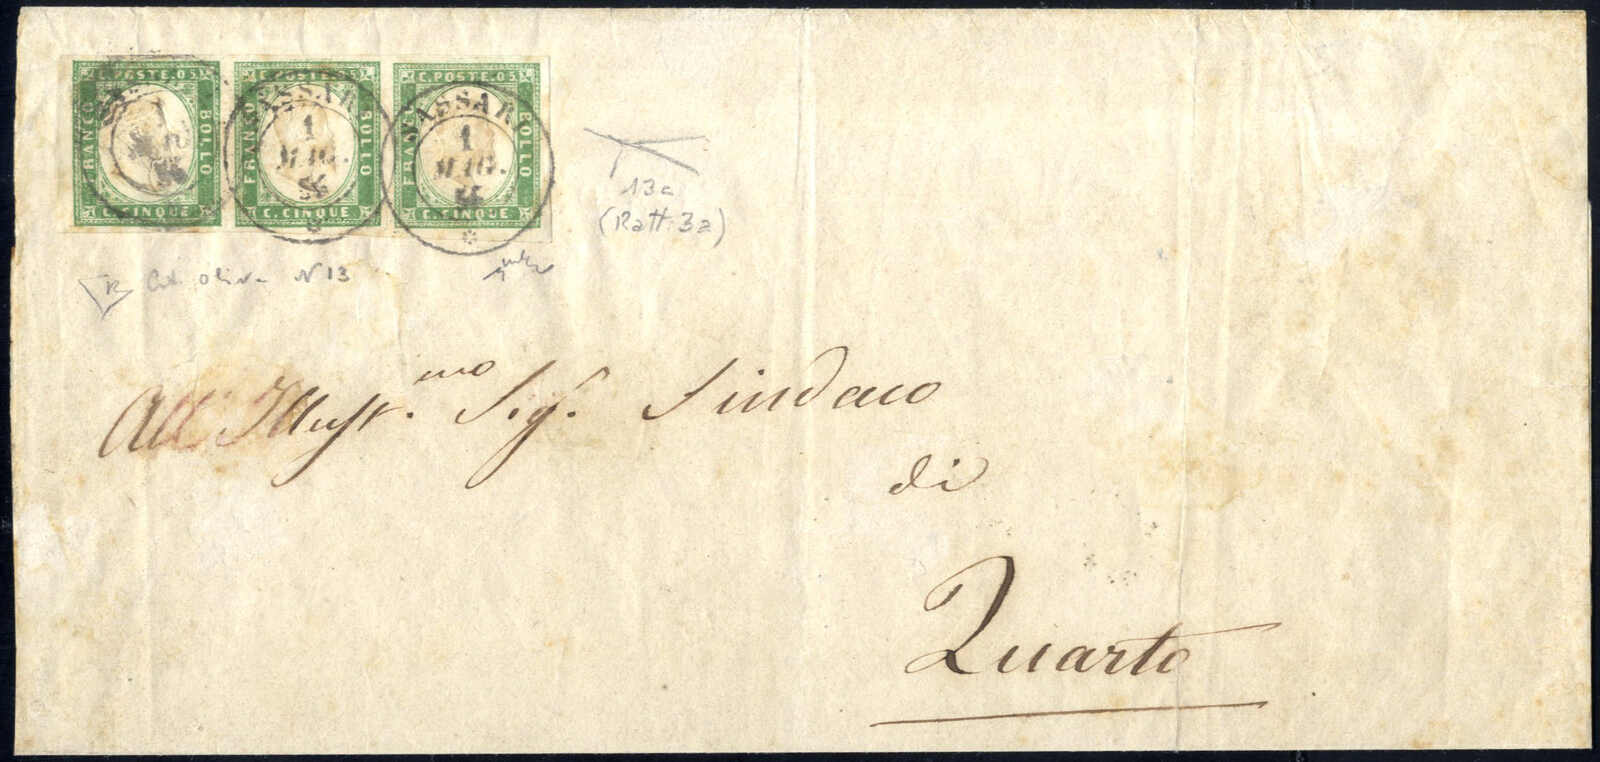 C.POSTE.05 C.POSTE.05
FRANCO BOLLO FRANCO BOLLO FRANCO BOLLO
C. CINQUE C. CINQUE C. CINQUE
SASSARI SASSARI
1 1 1
MAG. MAG.
56
13a
(Ratt. 3a)
N 13
All' Illust.mo Sig. Sindaco
di
Quarto